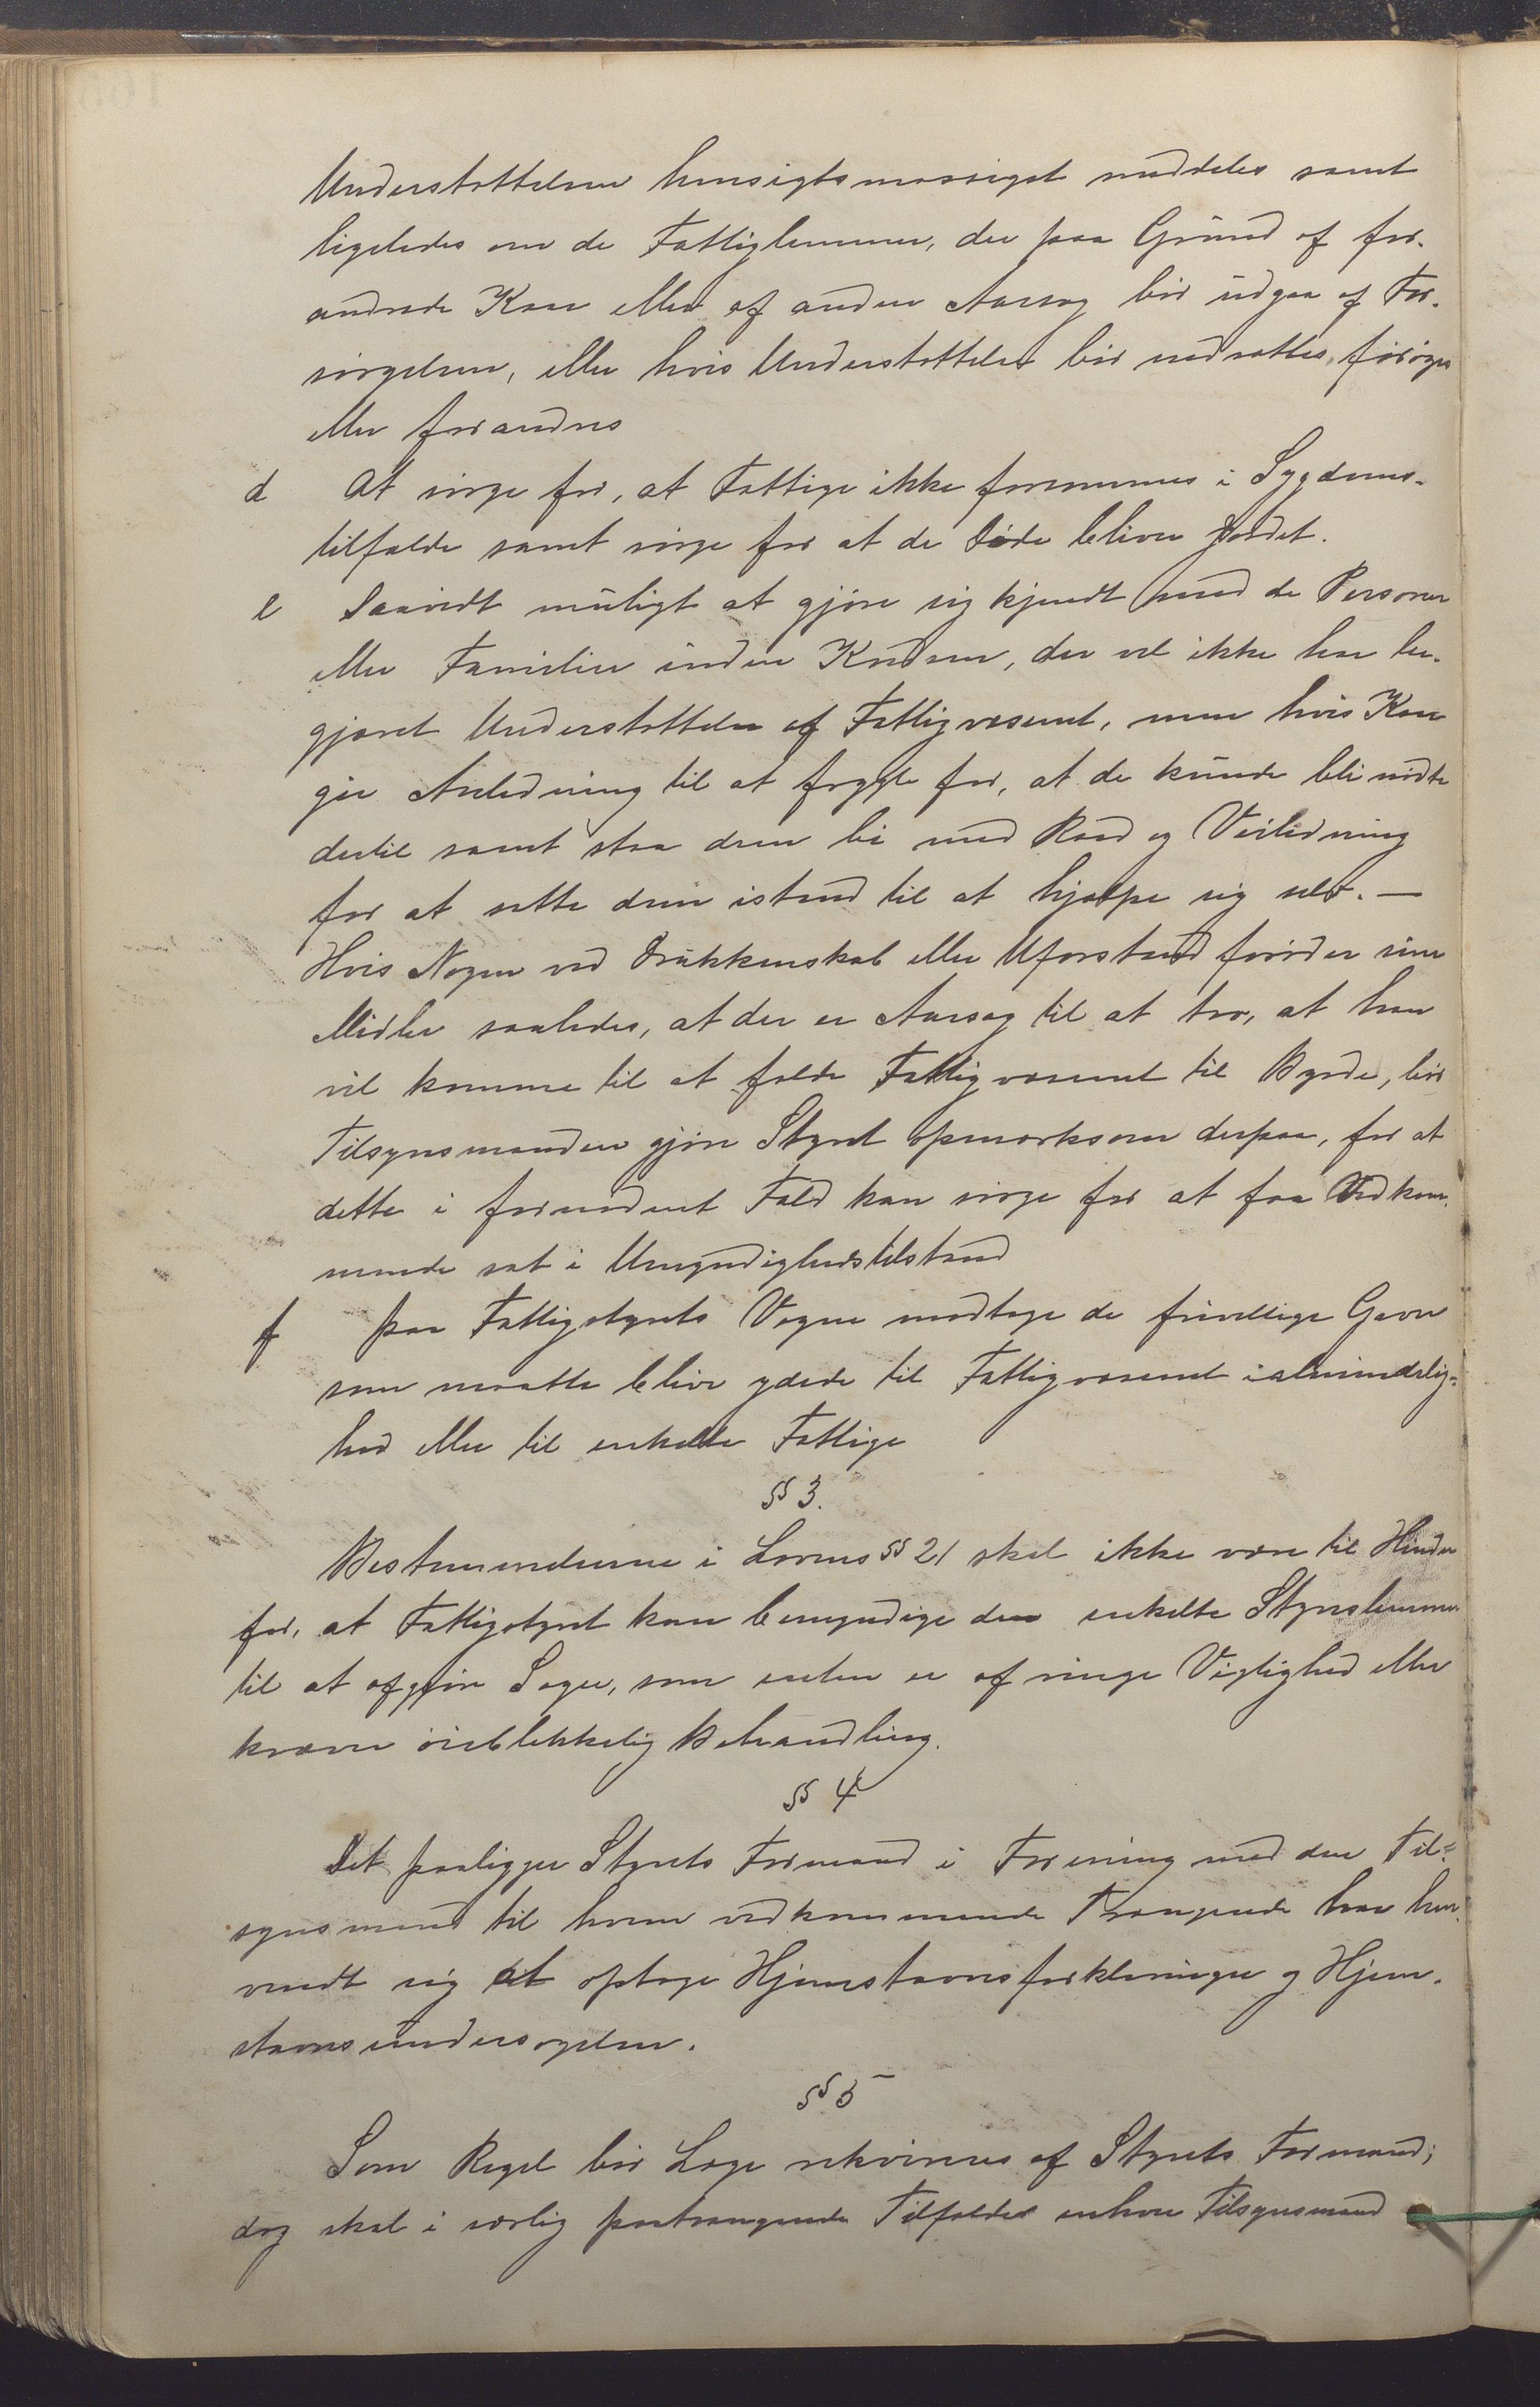 Understøttelsen hensigtsmæssigst meddeles samt
ligeledes om de Fattiglemmer, der paa Grund af for-
andrede Kaar eller af anden Aarsag bør udgaa af For-
sørgelsen, eller hvis Understøttelse bør nedsættes, forøges
eller forandres
d At sørge for, at Fattige ikke forsømmes i Sygdoms-
tilfælde samt sørge for at de Døde bliver jordet.
e Saavidt muligt at gjøre sig kjendt med de Personer
eller Familier inden Kredsen, der vel ikke har be-
gjæret Understøttelse af Fattigvæsenet, men hvis Kaar
gir Anledning til at frygte for, at de kunde bli nødte
dertil samt staa dem bi med Raad og Veiledning
for at sætte dem istand til at hjælpe sig selv. —
Hvis Nogen ved Drukkenskab eller Uforstand forøder sine
Midler saaledes, at der er Aarsag til at tro, at han
vil komme til at falde Fattigvæsenet til Byrde, bør
Tilsynsmanden gjøre Styret opmærksom derpaa, for at
dette i fornødent Fald kan sørge for at faa Vedkom-
mende sat i Umyndighedstilstand
f paa Fattigstyrets Vegne modtage de frivillige Gaver
som maatte blive ydede til Fattigvæsenet ialmindelig-
hed eller til enkelte Fattige
§§ 3.
Bestemmelserne i Lovens §§ 21 skal ikke være til Hinder
for, at Fattigstyret kan bemyndige den enkelte Styreslemmer
til at afgjøre Sager, som enten er af ringe Vigtighed eller
kræver øieblikkelig Behandling.
§§ 4
Det paaligger Styrets Formand i Forening med den Til-
synsmand til hvem vedkommende Trængende har hen-
vendt sig at optage Hjemstavnsforklaringer og Hjem-
stavnsundersøgelser.
§§ 5
Som Regel bør Læge rekvireres af Styrets Formand;
dog skal i særlig paatrængende Tilfælder enhver Tilsynsmand